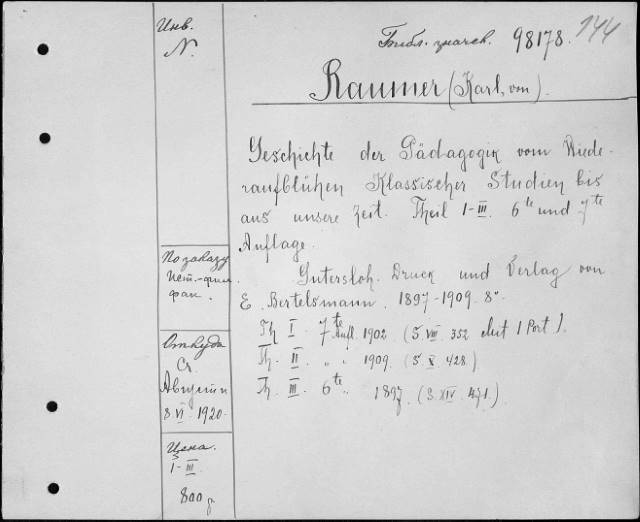 Инв.
N.
Библ. значек. 98178. 144
Raumer (Karl, von).
Geschichte der Pädagogik vom Wiede-
raufblühen Klassischer Studien bis
aus unsere Zeit. Theil I-III. 6te und 7te
Auflage.
Gutersloh. Druck und Verlag von
E. Bertelsmann. 1897-1909. 8°.
Th. I. 7te Aufl. 1902 (S. VIII. 352 mit 1 Port.).
Th. II. " " 1909. (S. X. 428.)
Th. III. 6te " 1897. (S. XIV. 471.)
По заказу
Ист.-фил.
фак.
Откуда
Ст.
Августин
8 VI. 1920.
Цена.
I-III.
800 р